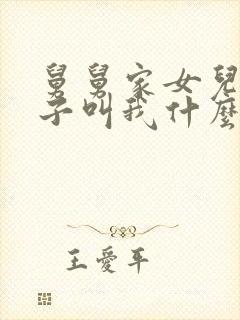 舅舅家女兒
子叫我什麼
王愛平